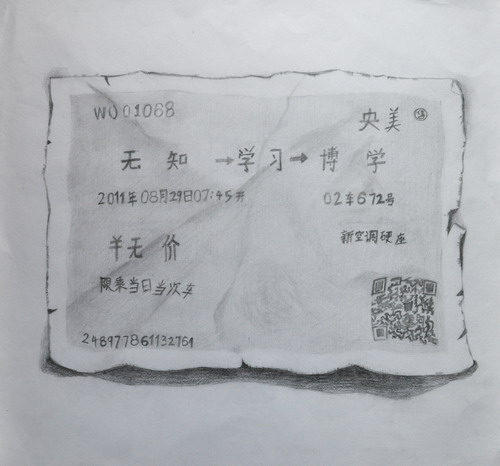 WU01068
央美
无知→学习→博学
2011年08月29日07:45开 02车672号
羊无价
新空调硬座
限乘当日当次车
248977861132761